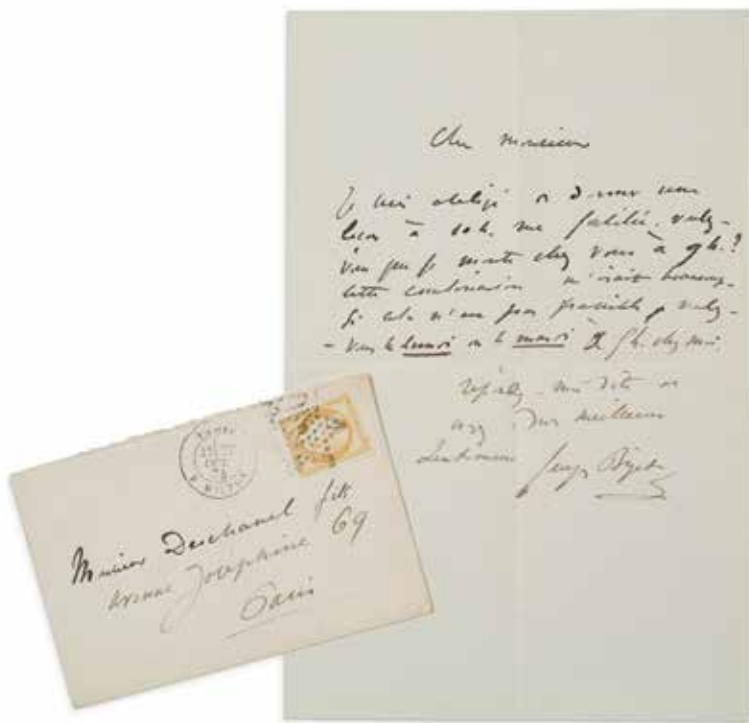 Cher monsieur
Je suis obligé de donner une
leçon à 10 h. rue Galilée. voulez-
vous que je monte chez vous à 9 h. ?
cette combinaison m'irait beaucoup.
Si cela n'est pas possible, voulez-
- vous le lundi ou le mardi à 5 h. chez moi.
répondez-moi vite et
meilleurs
sentiments Georges Bizet
Monsieur Deschanel fils
avenue Joséphine 69
Paris
R. MILTON